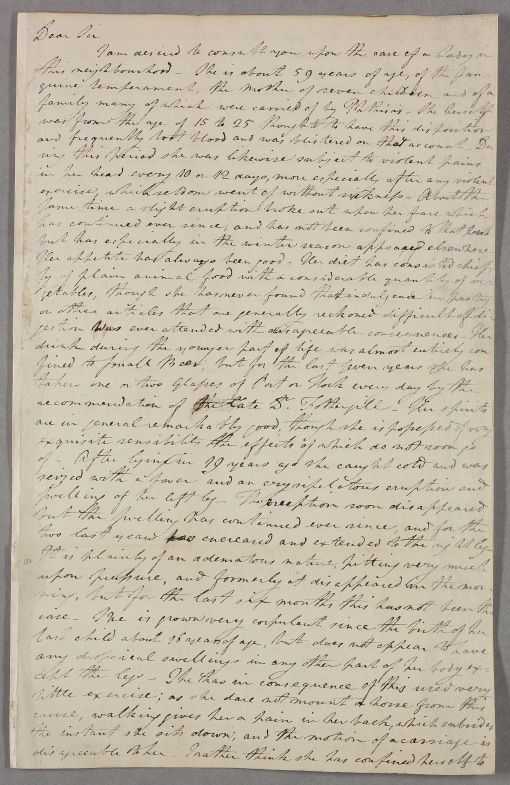 Dear Sir
I am desired to consult you upon the case of a Lady in
this neighbourhood - She is about 59 years of age, of the san-
guine temperament, the mother of seven children, and of a
family many of which were carried of by Phthisis. She herself
was from the age of 15 to 25 thought to have this disposition
and frequently lost blood and was blistered on that account. Du
ring this period she was likewise subject to violent pains
in her head every 10 or 12 days, more especially after any violent
exercise, which seldom went of without sickness. About the
same time a slight eruption broke out upon her face which
has continued ever since, and has not been confined to that part
but has especially in the winter season appeared elsewhere
Her appetite has always been good - Her diet has consisted chief
ly of plain animal food with a considerable quantity of ve
getables, though she has never found that indulgence in pastry
or other articles that are generally reckoned difficult of di
gestion was ever attended with disagreeable consequences - Her
drink during the younger part of life was almost entirely con
fined to small Beer, but for the last seven years she has
taken one or two Glasses of Port or Hock every day by the
recommendation of the late Dr. Fothergill - Her spirits
are in general remarkably good, though she is possessed of very
exquisite sensibility the effects of which do not soon go
of - After lying in 29 years ago she caught cold and was
seized with a fever and an erysipelatous eruption and
swelling of her left leg - The eruption soon disappeared
but the swelling has continued ever since, and for the
two last years has encreased and extended to the right leg
It is plainly of an œdematous nature, pitting very much
upon pressure, and formerly it disappeared in the mor
ning, but for the last six months this has not been the
case - She is grown very corpulent since the birth of her
last child about 16 years of age, but does not appear to have
any dropsical swellings in any other part of her body ex-
cept the legs - She has in consequence of this used very
little exercise; as she dare not mount a horse from this
cause, walking gives her a pain in her back, which subsides
the instant she sits down; and the motion of a carriage is
disagreeable to her. I rather think she has confined herself to